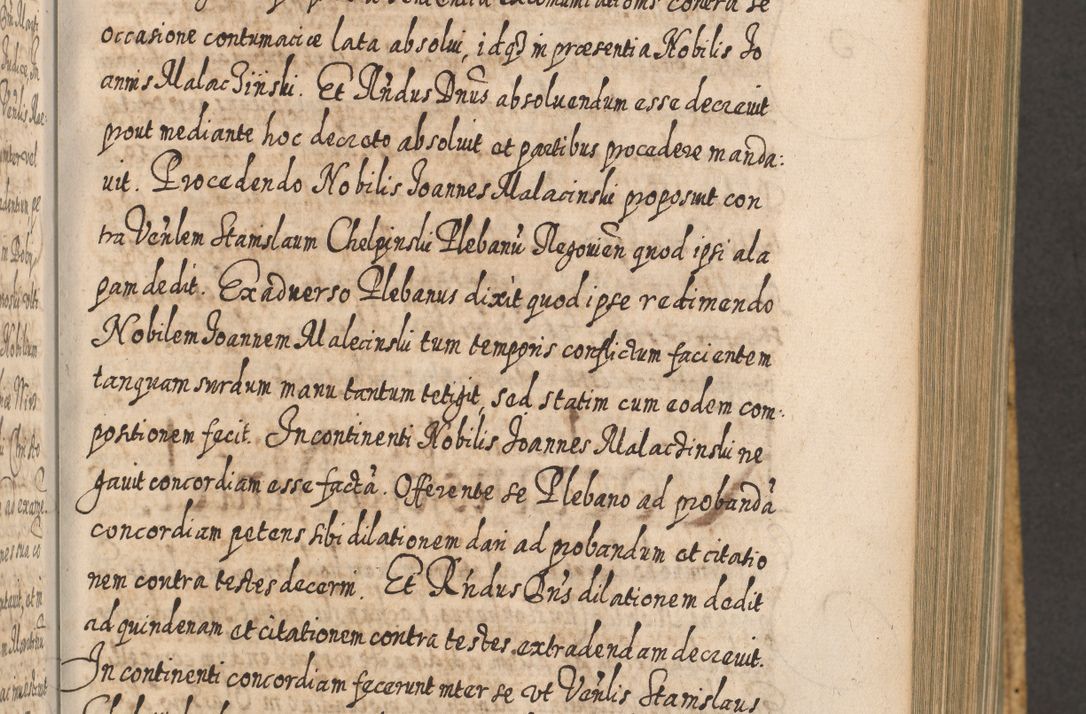 occasione contumaciæ lata absolui, idq3 in præsentia Nobilis Jo
annis Malaczinski. Et Rn̄dus Dn̄us absoluendum esse decreuit
prout mediante hoc decreto absoluit et partibus procedere manda:
uit. Procedendo Nobilis Joannes Malacinski proposuit con
tra Ven̄lem Stanislaum Chelpinski Plebanū Negouien̄ quod ipsi ala
pam dedit. Ex aduerso Plebanus dixit quod ipse redimendo
Nobilem Joannem Malecinski tum temporis conflictum facientem
tanquam surdum manu tantum tetigit, sed statim cum eodem com:
positionem fecit. Incontinenti Nobilis Joannes Malaczinski ne
gauit concordiam esse factā. Offerente se Plebano ad probandā
concordiam petens sibi dilationem dari ad probandum et citatio
nem contra testes decerni. Et Rn̄dus Dn̄s dilationem dedit
ad quindenam et citationem contra testes extradendam decreuit.
In continenti concordiam fecerunt inter se ut Ven̄lis Stanislaus